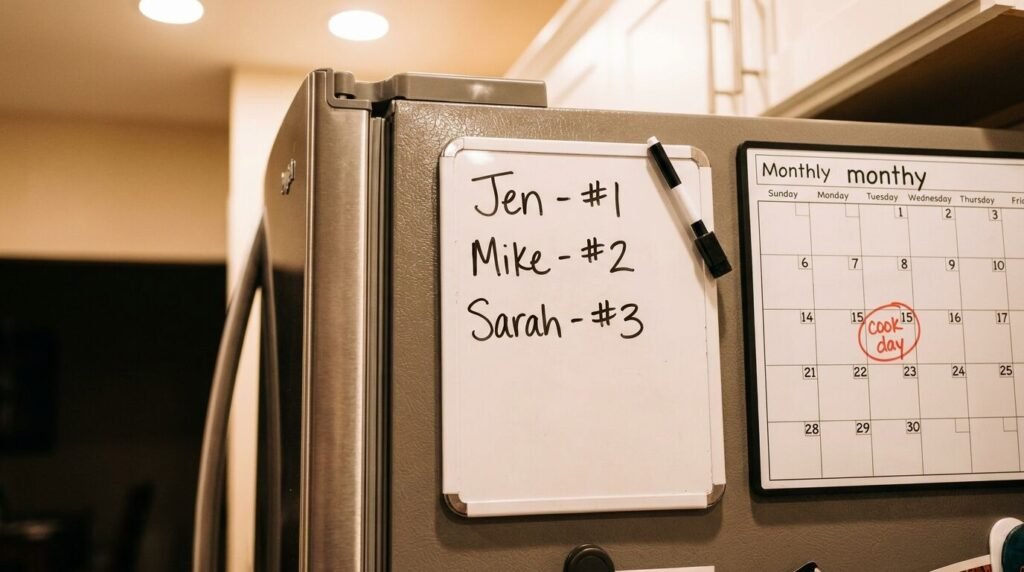 Jen - #1
Mike - #2
Sarah - #3
Monthly monthy
Sunday Monday Tuesday Wednesday Thursday
1 2 3
6 7 8 9 10
14 15 15 16 17
cook
day
21 22 23 24 25
28 29 30